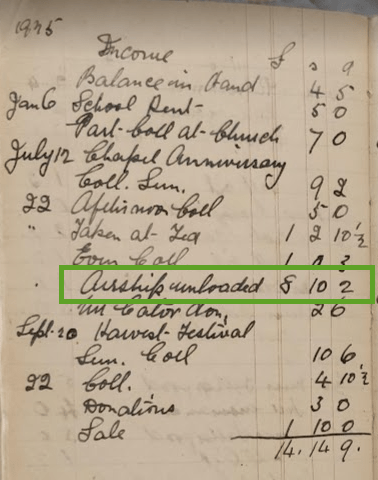 1925
Income £ s d
Balance in Hand 4 5
Jan 6 School Rent 5 0
Part-Coll at Church 7 0
July 12 Chapel Anniversary
Coll. Sun. 9 2
22 Afternoon Coll 5 0
" Taken at Tea 1 2 10½
Even Coll 1 0 3
Airship unloaded 8 10 2
Mr Cator don, 2 6
Sept. 20 Harvest-Festival
Sun. Coll 10 6
22 Coll. 4 10½
Donations 3 0
Sale 1 10 0
14. 14 9.